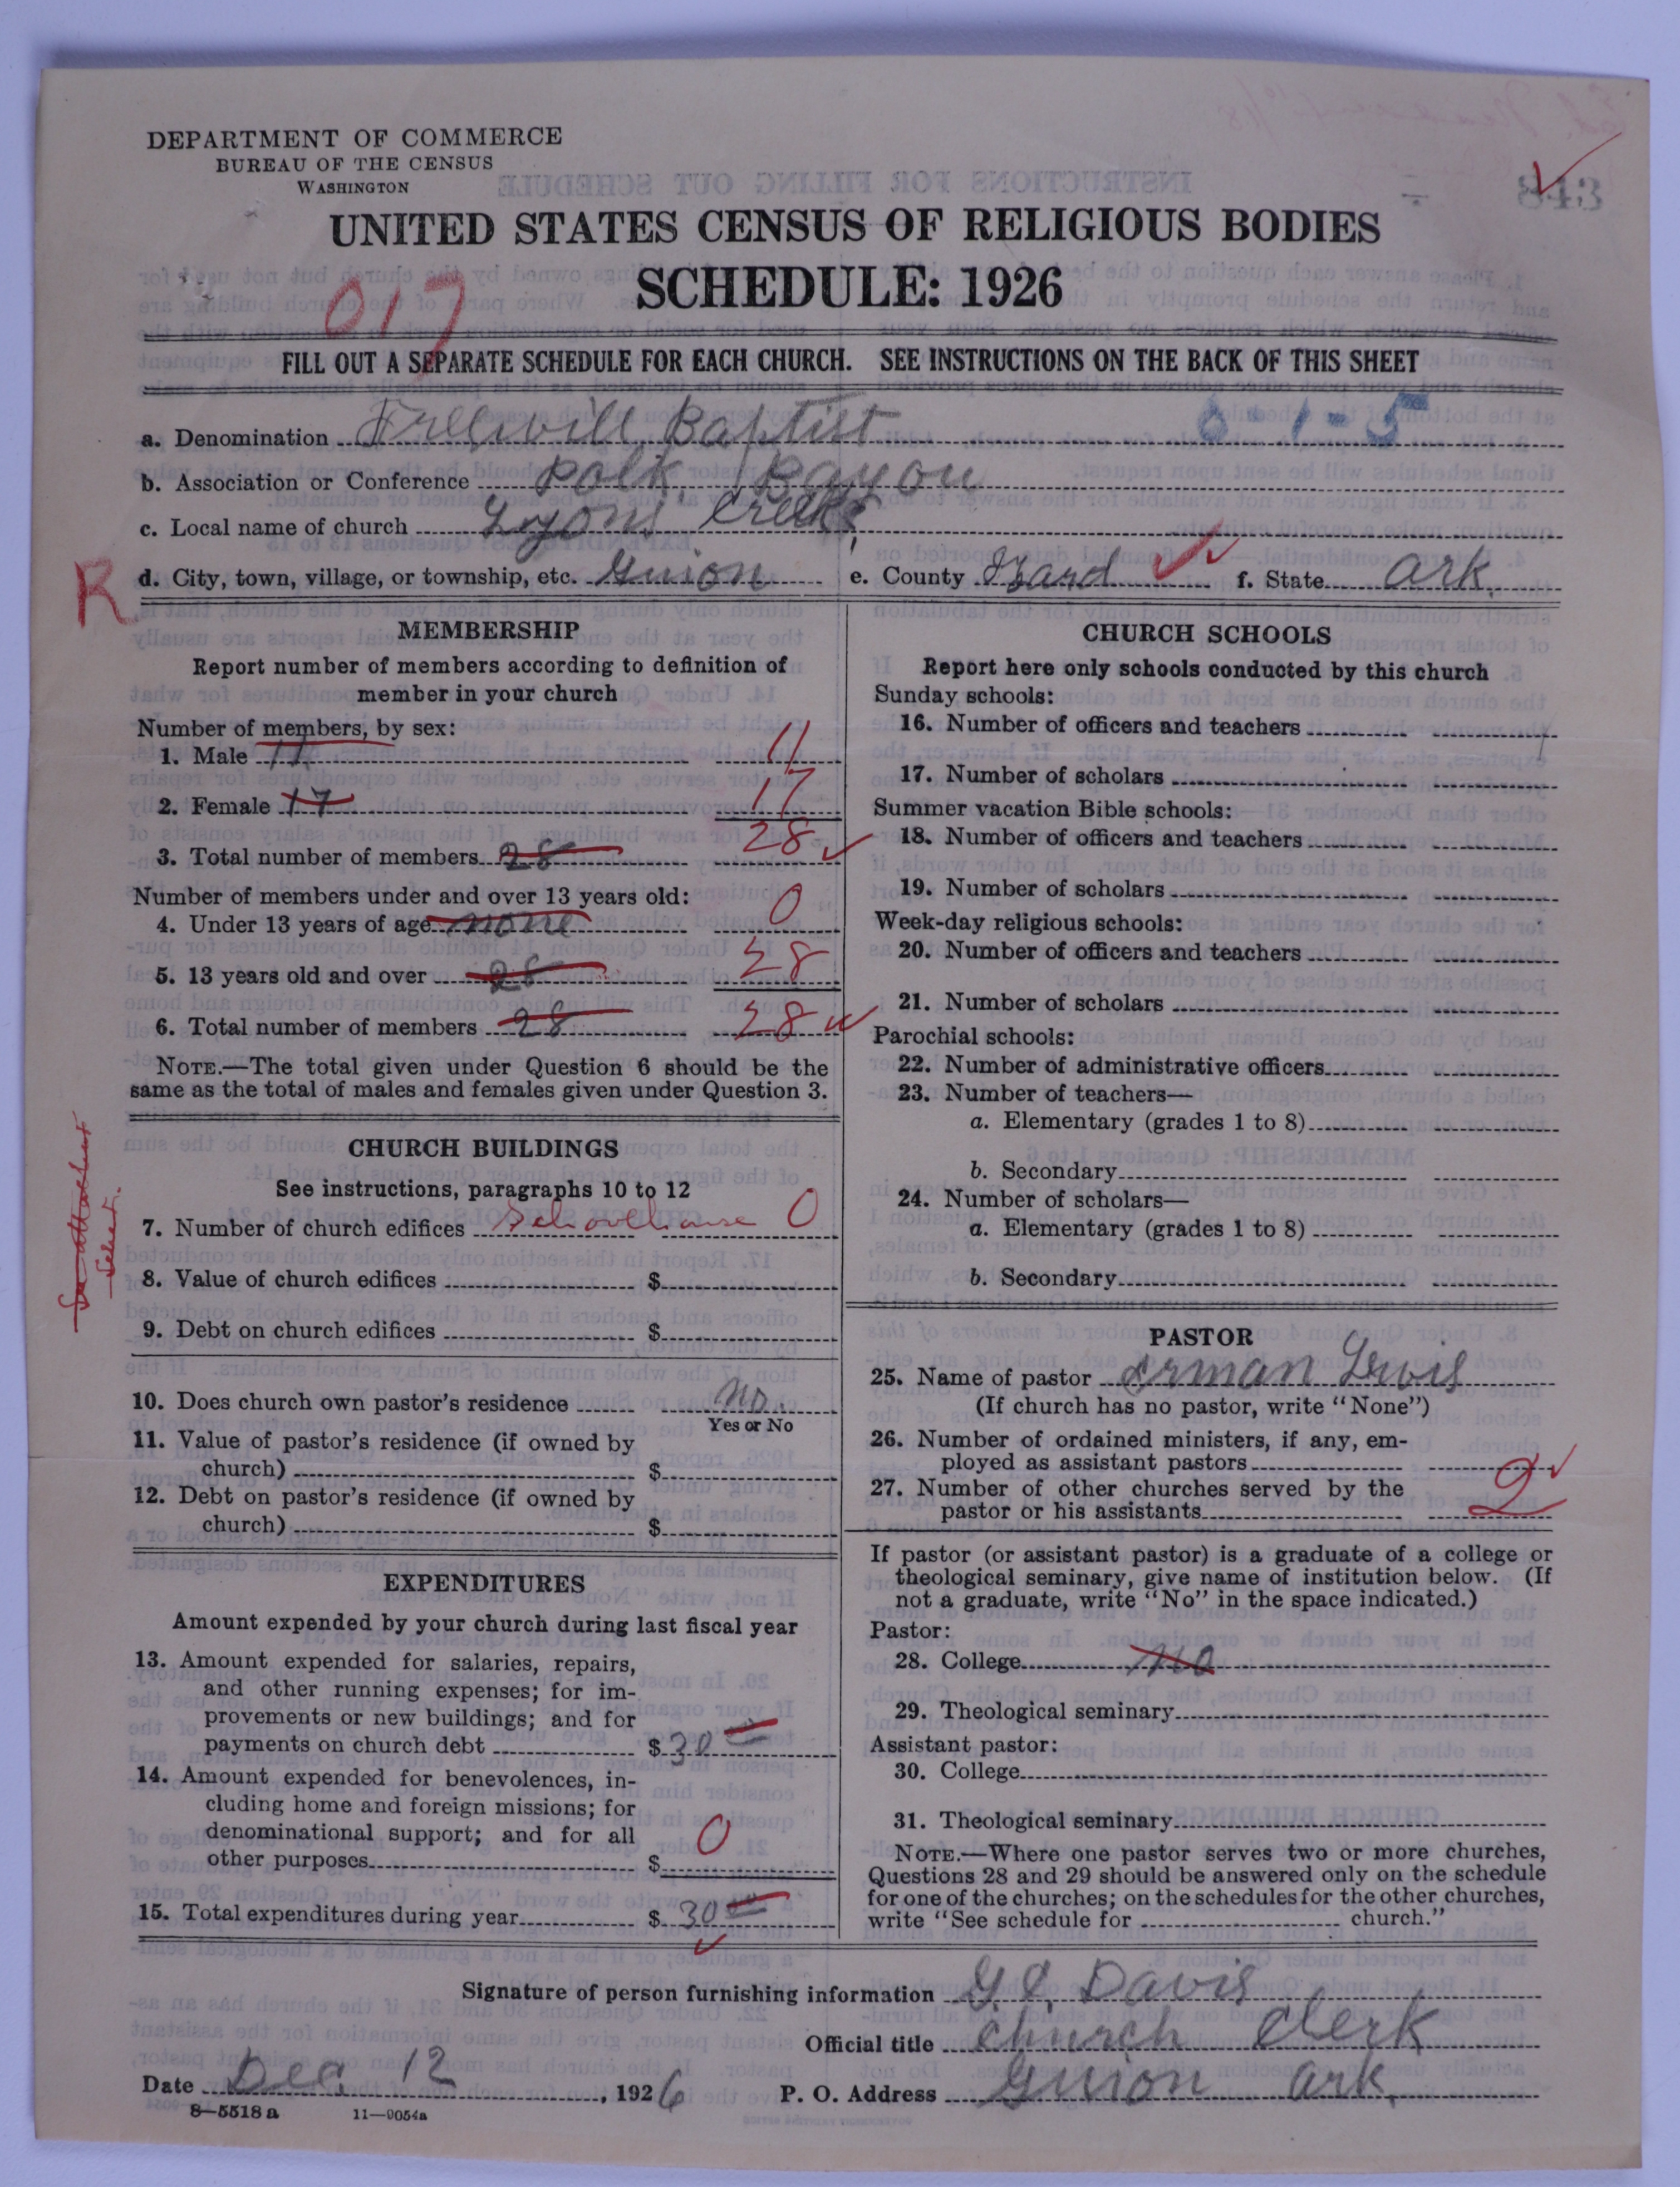 DEPARTMENT OF COMMERCE
BUREAU OF THE CENSUS
WASHINGTON
843
UNITED STATES CENSUS OF RELIGIOUS BODIES
SCHEDULE: 1926
017
FILL OUT A SEPARATE SCHEDULE FOR EACH CHURCH. SEE INSTRUCTIONS ON THE BACK OF THIS SHEET
a. Denomination Freewill Baptist 6-1-5
b. Association or Conference Polk Bayou
c. Local name of church Lyons Creek
R d. City, town, village, or township, etc. Guion e. County Izard f. State Ark.
MEMBERSHIP
Report number of members according to definition of
member in your church
Number of members, by sex:
1. Male 11 11
2. Female 17 17
3. Total number of members 28 28
Number of members under and over 13 years old:
4. Under 13 years of age none 0
5. 13 years old and over 28 28
6. Total number of members 28 28
NOTE.—The total given under Question 6 should be the
same as the total of males and females given under Question 3.
CHURCH BUILDINGS
See instructions, paragraphs 10 to 12
7. Number of church edifices Schoolhouse 0
8. Value of church edifices $
9. Debt on church edifices $
10. Does church own pastor's residence no.
Yes or No
11. Value of pastor's residence (if owned by
church) $
12. Debt on pastor's residence (if owned by
church) $
EXPENDITURES
Amount expended by your church during last fiscal year
13. Amount expended for salaries, repairs,
and other running expenses; for im-
provements or new buildings; and for
payments on church debt $30
14. Amount expended for benevolences, in-
cluding home and foreign missions; for
denominational support; and for all
other purposes $ 0
15. Total expenditures during year $ 30
CHURCH SCHOOLS
Report here only schools conducted by this church
Sunday schools:
16. Number of officers and teachers
17. Number of scholars
Summer vacation Bible schools:
18. Number of officers and teachers
19. Number of scholars
Week-day religious schools:
20. Number of officers and teachers
21. Number of scholars
Parochial schools:
22. Number of administrative officers
23. Number of teachers—
a. Elementary (grades 1 to 8)
b. Secondary
24. Number of scholars—
a. Elementary (grades 1 to 8)
b. Secondary
PASTOR
25. Name of pastor Erman Lewis
(If church has no pastor, write "None")
26. Number of ordained ministers, if any, em-
ployed as assistant pastors
27. Number of other churches served by the
pastor or his assistants 2
If pastor (or assistant pastor) is a graduate of a college or
theological seminary, give name of institution below. (If
not a graduate, write "No" in the space indicated.)
Pastor:
28. College no
29. Theological seminary
Assistant pastor:
30. College
31. Theological seminary
NOTE.—Where one pastor serves two or more churches,
Questions 28 and 29 should be answered only on the schedule
for one of the churches; on the schedules for the other churches,
write "See schedule for church."
Signature of person furnishing information G. E. Davis
Official title church Clerk
Date Dec. 12, 1926 P. O. Address Guion Ark.
8—5518 a 11—9054a